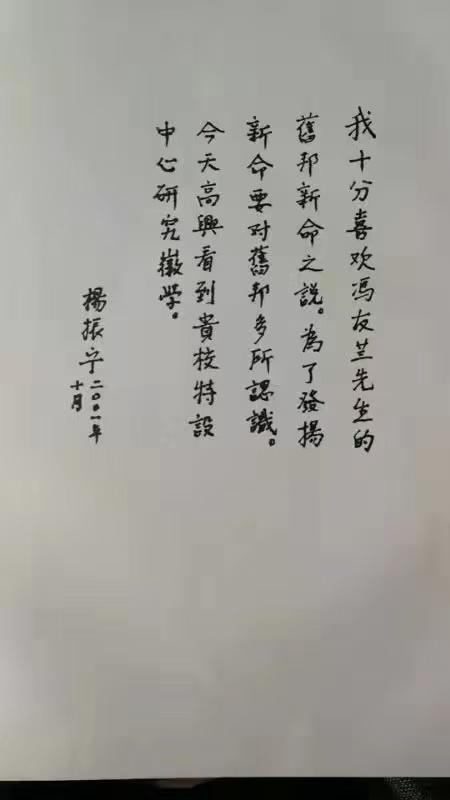 我十分喜欢冯友兰先生的
舊邦新命之説。為了發揚
新命要对舊邦多所認識。
今天高興看到貴校特設
中心研究徽学。
楊振宁二〇〇一年
十月